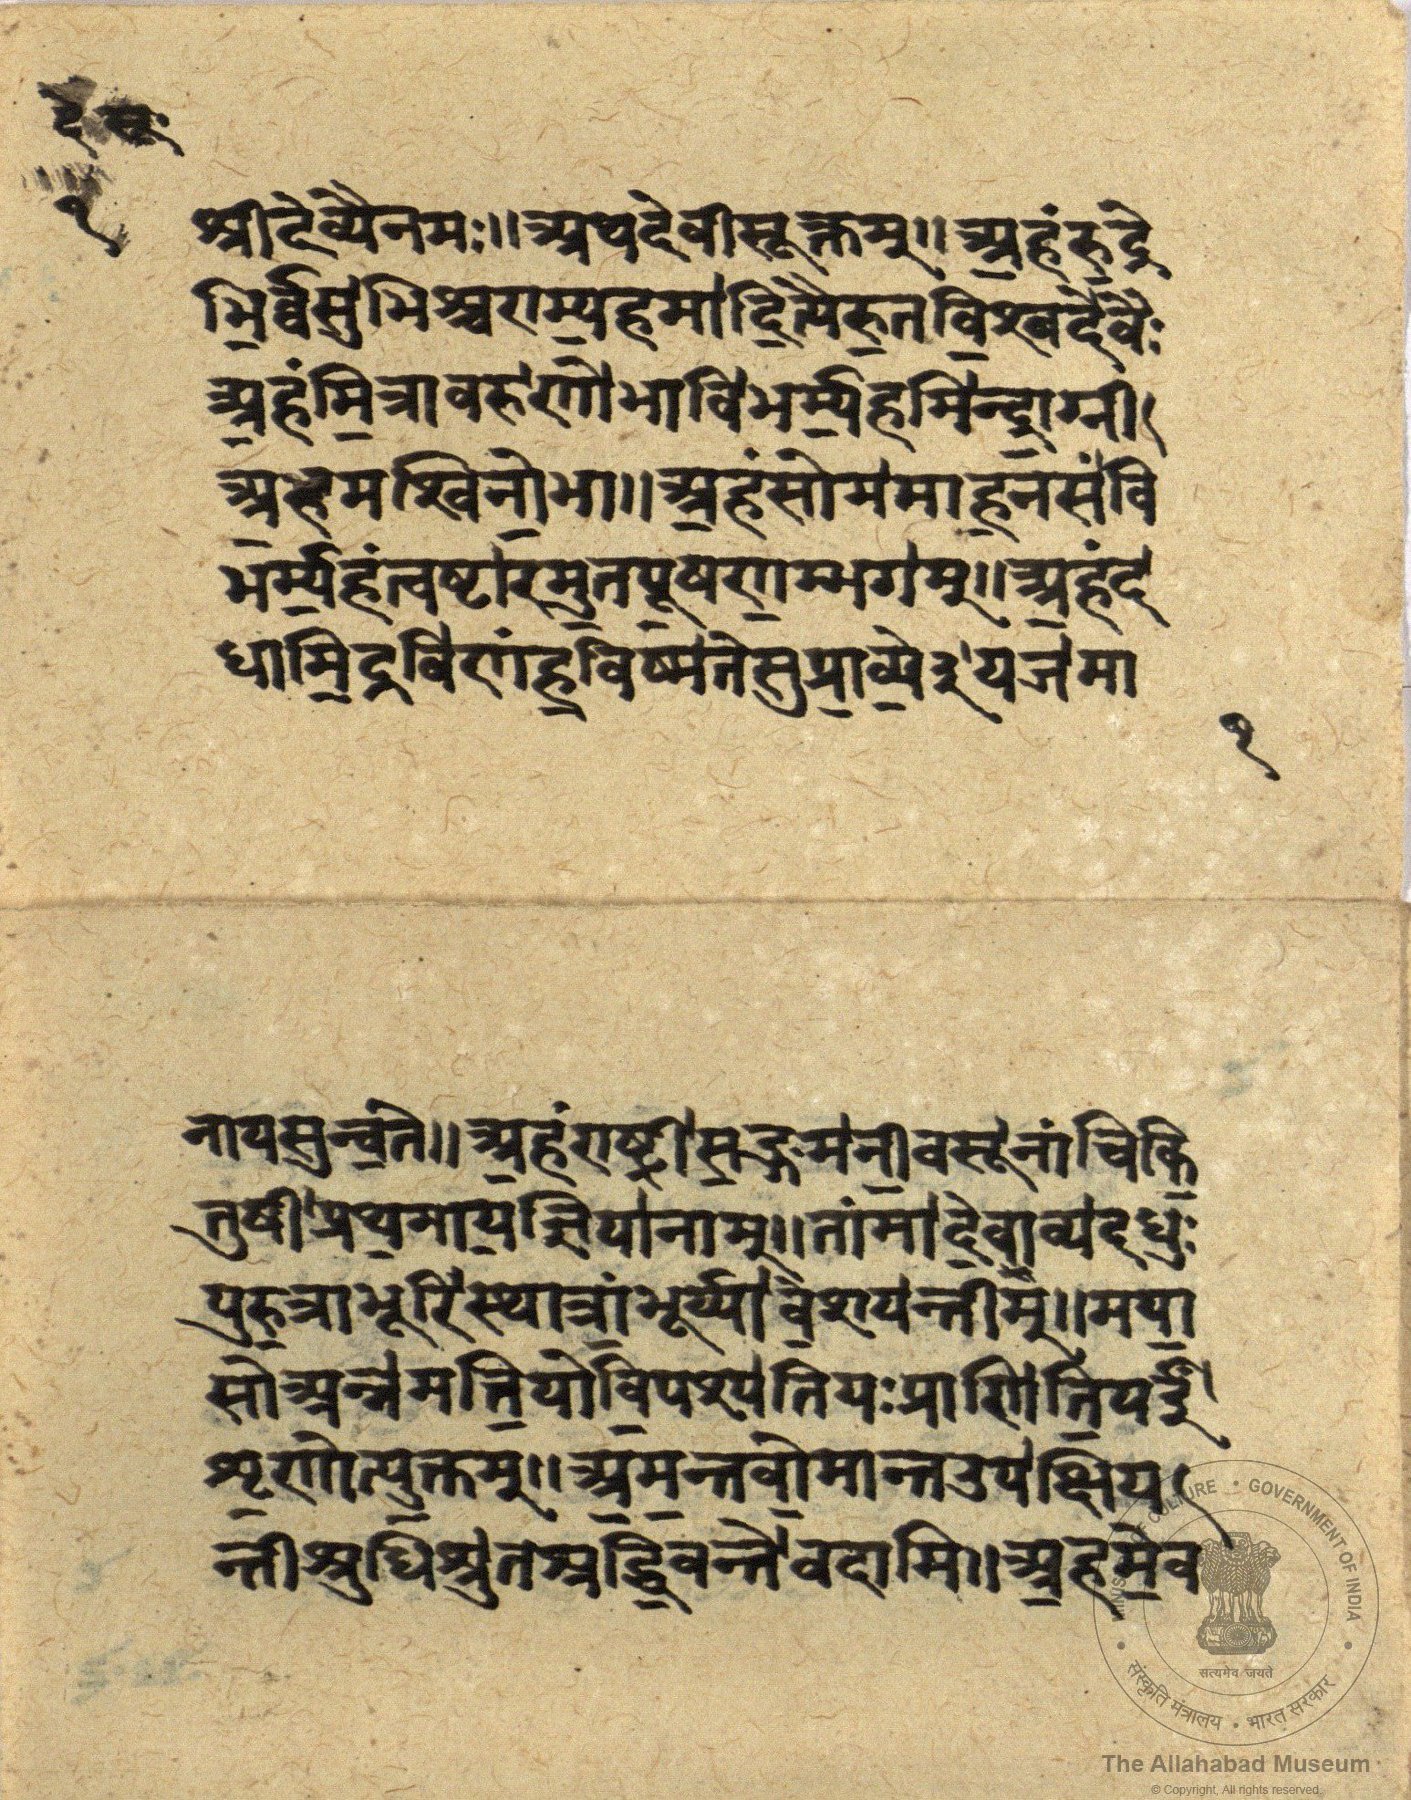 दे॰ सू॰
१
श्रीदेव्यैनमः॥ अथदेवीसूक्तम्॥ अ॒हंरु॒द्रे
भि॒र्व्वसु॑भिश्चराम्य॒हमा॑दि॒त्यैरु॒तवि॒श्वदे॑वैः
अ॒हंमि॒त्रावरु॑णो॒भावि॑भर्म्य॒हमि॑न्द्रा॒ग्नी
अ॒हम॒श्विनो॒भा॥ अ॒हंसोम॑मा॒हन॒संवि
भर्म्य॒हंत्वष्टा॑रमु॒तपू॒षण॒म्भग॑म्॥ अ॒हंद॑
धामि॒द्रवि॑णंह॒विष्म॑तेसुप्रा॒व्ये॒३॒॑यज॑मा
१
नायसुन्व॒ते॥ अ॒हंराष्ट्री॑स॒ङ्गम॑नी॒वसू॑नांचिकि॒
तुषी॑प्रथ॒माय॒ज्ञिया॑नाम्॥ तांमा॑दे॒वाव्य॑दधुः
पुरु॒त्राभूरि॑स्थात्रां॒भूर्य्या॑वे॒शय॑न्तीम्॥ मया॒
सोअन्न॑मत्ति॒योवि॒पश्य॑तियःप्राणि॑ति॒यईं॑
शृ॒णोत्युक्तम्॥ अ॒म॒न्तवो॒मान्तउप॑क्षिय
न्तीश्रुधिश्रुतश्रद्धि॒वन्ते॑वदामि॥ अ॒हमे॒व
MINISTRY OF CULTURE • GOVERNMENT OF INDIA
सत्यमेव जयते
संस्कृति मंत्रालय • भारत सरकार
The Allahabad Museum
© Copyright, All rights reserved.